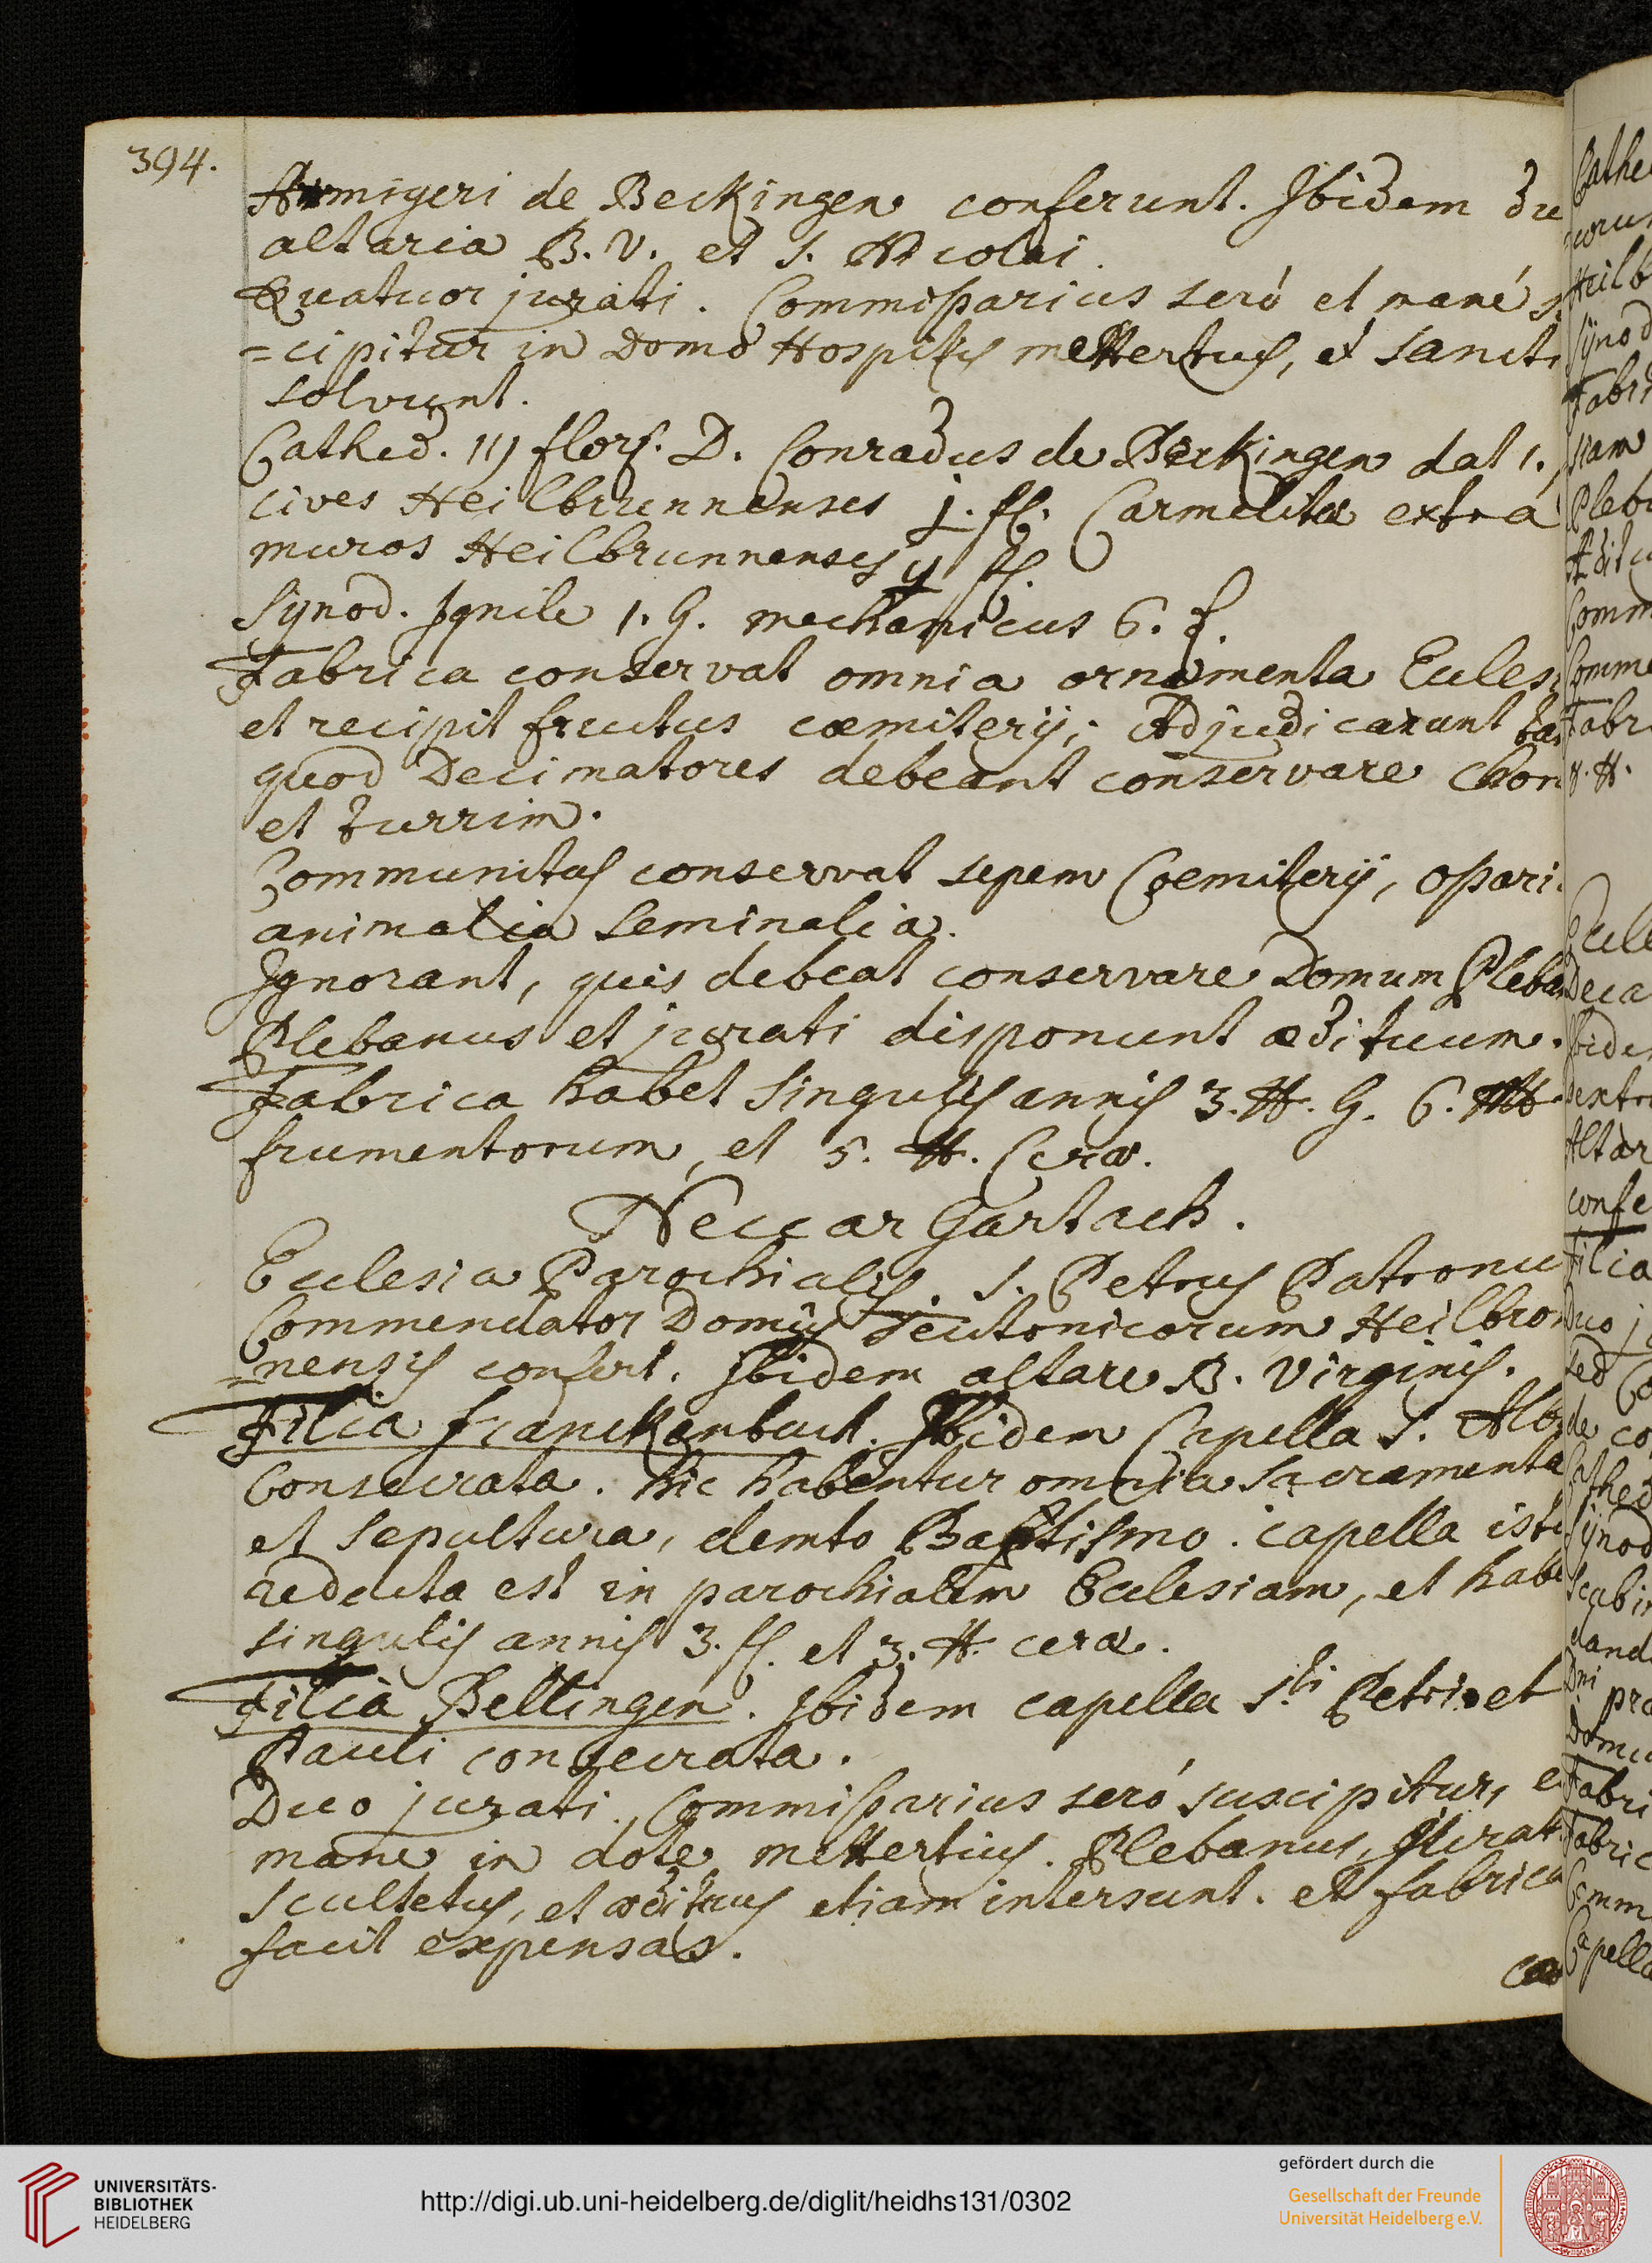 394.
Armigeri de Beckingen conferunt. Ibidem du
altaria B. V. et S. Nicolai.
Quatuor jurati. Commissarius seró et mané s
=cipitur in Domo Hospitis mettertius, et Sancti
solvunt.
Cathed. iij flors. D. Conradus de Beckingen dat 1.
cives Heilbrunnenses j. fl. Carmelitæ extra
muros Heilbrunnenses ij fl.
Synod. Ignile 1. G. mechanicus 6. ₰.
Fabrica conservat omnia ornamenta Eccles
et recipit fructus cœmiterij; Adjudicarunt ta
quod Decimatores debeant conservare chor
et turrim.
Communitas conservat sepem Cœmiterij, ossari
animalia seminalia.
Ignorant, quis debeat conservare Domum Pleba
Plebanus et jurati disponunt ædituum.
Fabrica habet singulis annis 3. ℔. G. 6. Mℓ
frumentorum, et 5. ℔. Ceræ.
Neccar Gartach.
Ecclesia Parochialis. S. Petrus Patronu
Commendator Domûs Teutonicorum Heilbron
=nensis confert. Ibidem altare B. Virginis.
Filia Franckenbach. Ibidem Capella S. Alb
Consecrata. hic habentur omnia sacramenta
et sepultura, demto Baptismo. capella ista
redacta est in parochialem Ecclesiam, et habe
singulis annis 3. fl. et 3. ℔. ceræ.
Filia Bellingen. Ibidem capella S.ti Petri et
Pauli consecrata.
Duo jurati. Commissarius seró suscipitur, e
mane in dote mettertius. Plebanus, Jurati
scultetus, et ædituus etiam intersunt. et fabrica
facit expensas.
UNIVERSITÄTS-
BIBLIOTHEK
HEIDELBERG
http://digi.ub.uni-heidelberg.de/diglit/heidhs131/0302
gefördert durch die
Gesellschaft der Freunde
Universität Heidelberg e.V.